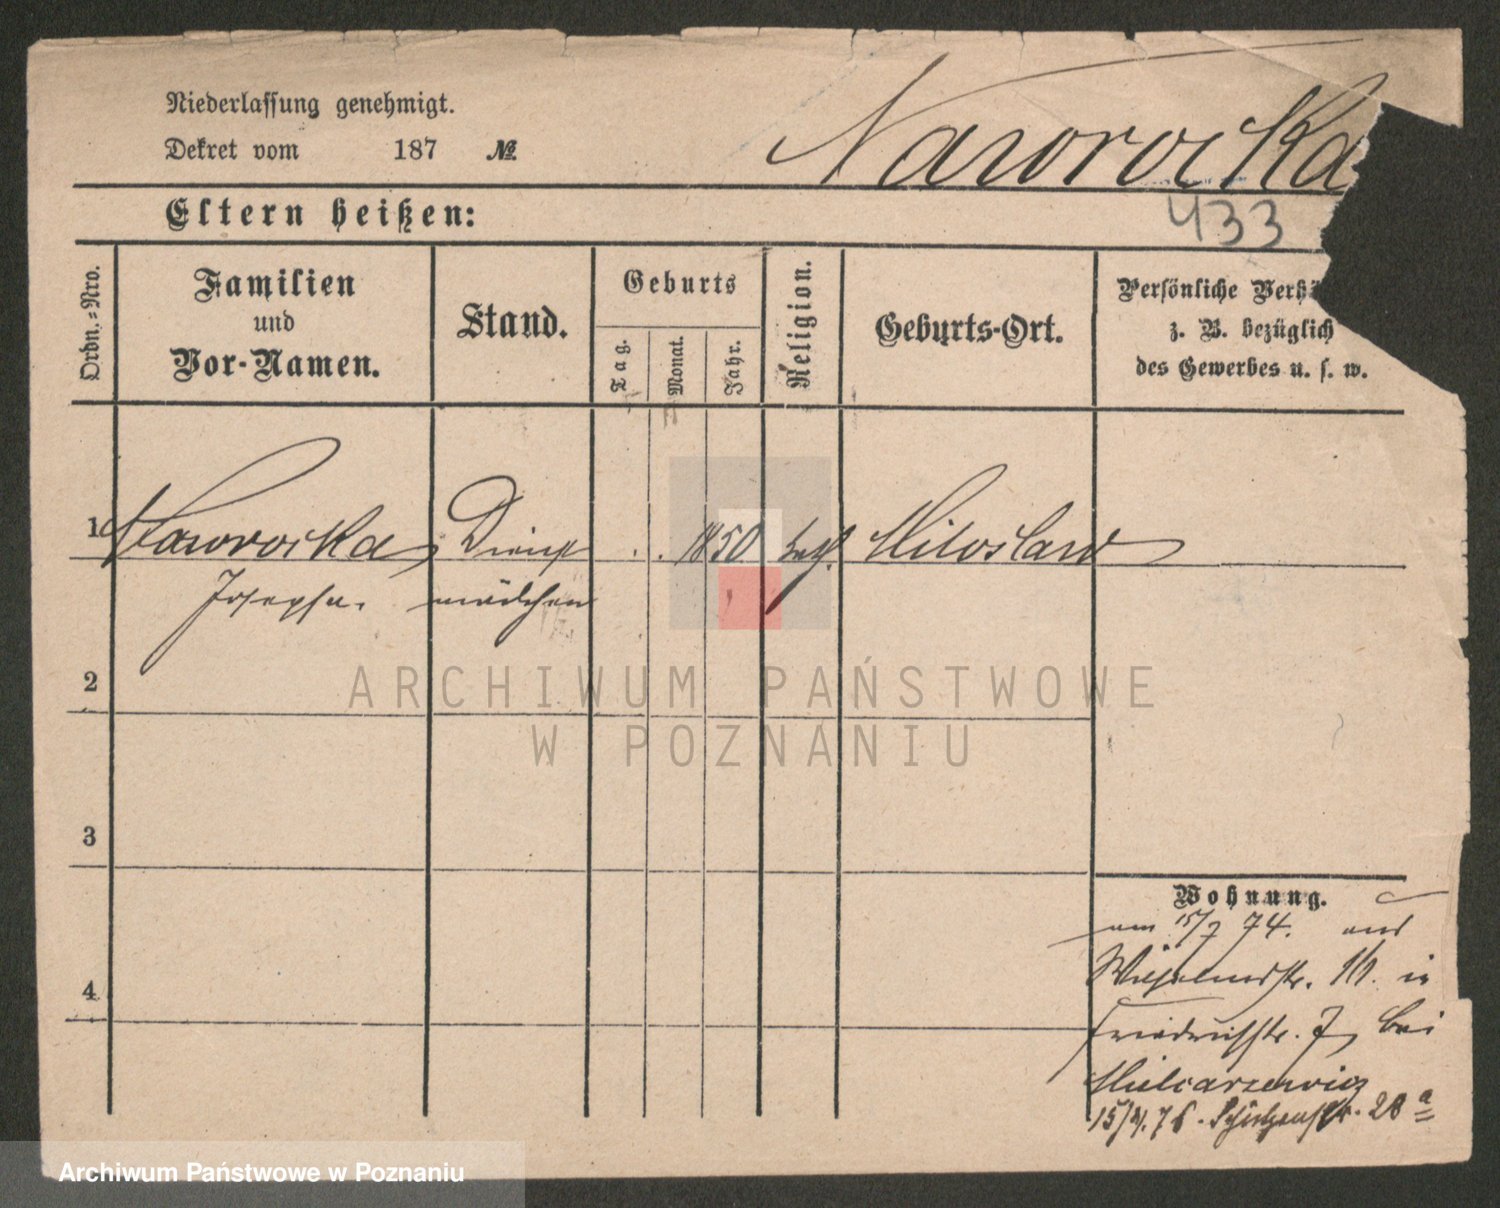 Niederlassung genehmigt.
Dekret vom 187 №
Naworocka
433
Eltern heißen:
Ordn.=Nro.
Familien
und
Vor-Namen.
Stand.
Geburts
Tag.
Monat.
Jahr.
Religion.
Geburts-Ort.
Persönliche Verhä
z. B. bezüglich
des Gewerbes u. s. w.
1 Naworocka Dienst . . 1850 kath. Miloslaw
Josepha. mädchen
2
3
4
Wohnung.
am 15/7 74. aus
Wilhelmstr. 16. in
Friedrichstr. 7, bei
Mielcarzewicz
15/4. 76. Schützenstr. 28 a
ARCHIWUM PAŃSTWOWE
W POZNANIU
Archiwum Państwowe w Poznaniu